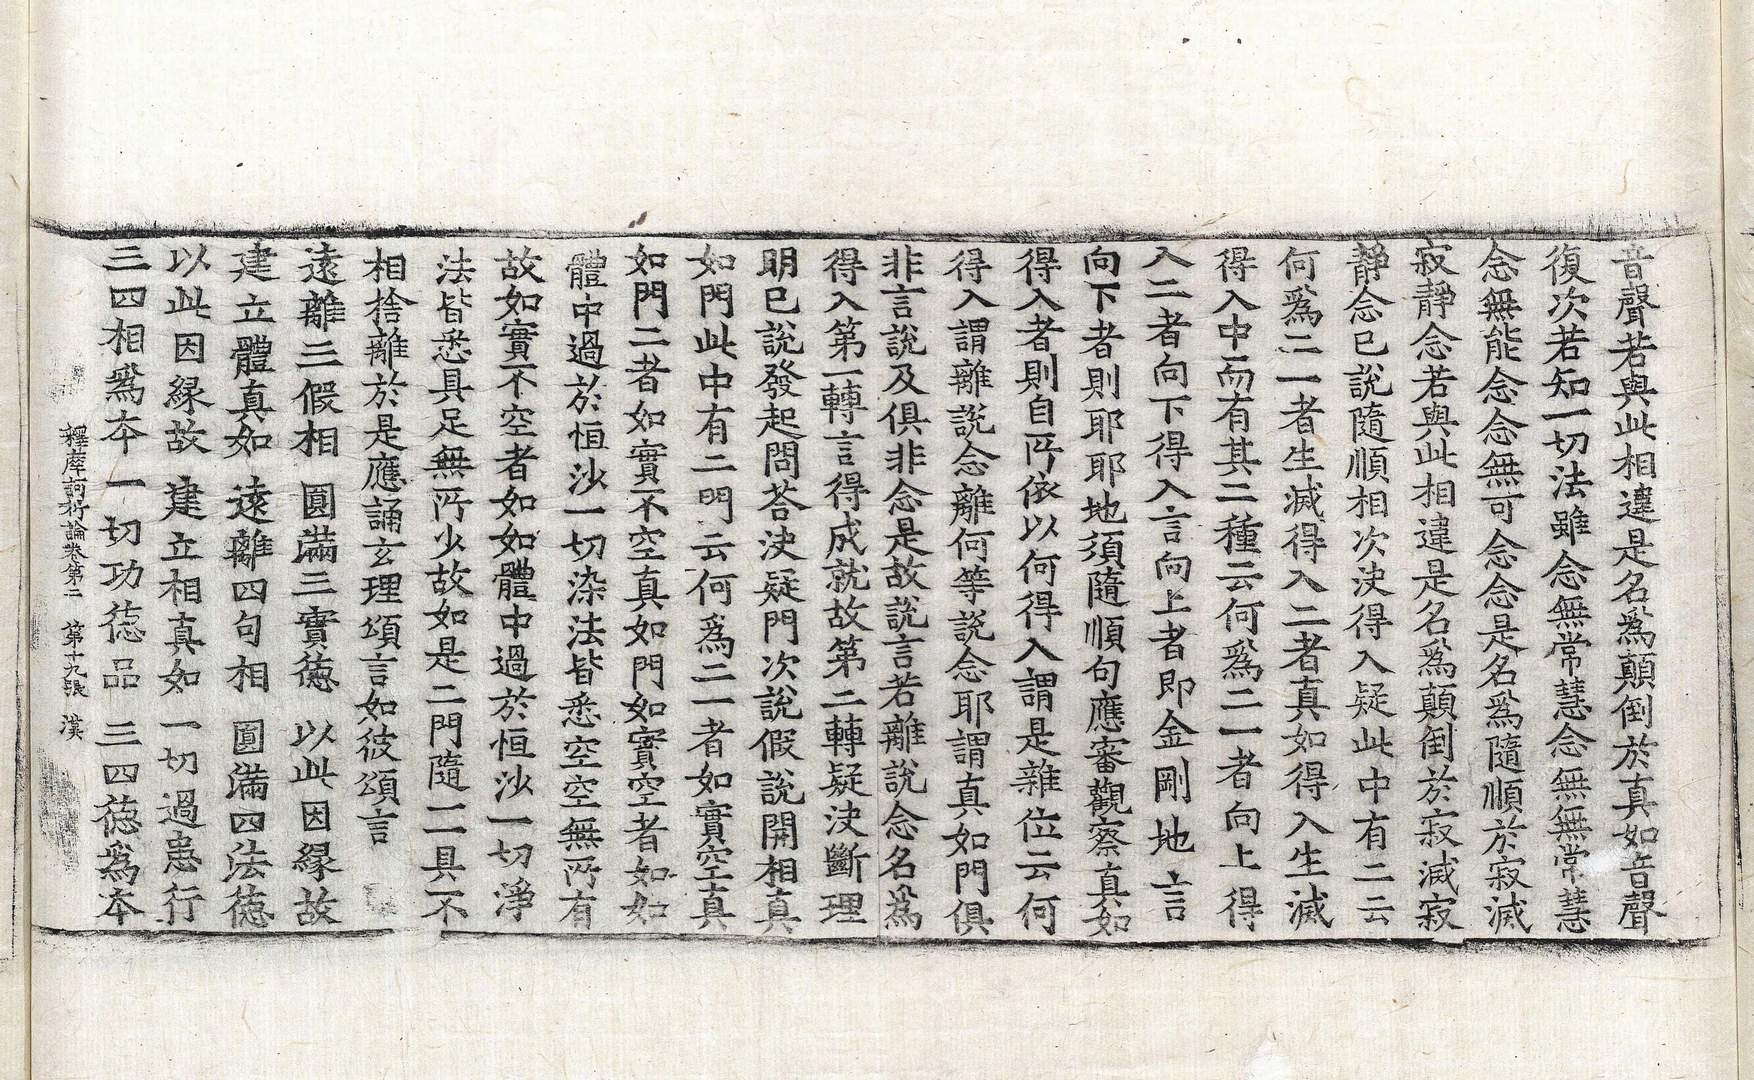 音聲若與此相違是名爲顛倒於真如音聲
復次若知一切法雖念無常慧念無無常慧
念無能念念無可念念是名爲隨順於寂滅
寂靜念若與此相違是名爲顛倒於寂滅寂
靜念已說隨順相次決得入疑此中有二云
何爲二一者生滅得入二者真如得入生滅
得入中而有其二種云何爲二一者向上得
入二者向下得入言向上者即金剛地言
向下者則耶耶地須隨順句應審觀察真如
得入者則自所依以何得入謂是離位云何
得入謂離說念離何等說念耶謂真如門俱
非言說及俱非念是故說言若離說念名爲
得入第一轉言得成就故第二轉疑決斷理
明已說發起問荅決疑門次說假說開相真
如門此中有二門云何爲二一者如實空真
如門二者如實不空真如門如實空者如如
體中過於恒沙一切染法皆悉空空無所有
故如實不空者如如體中過於恒沙一切淨
法皆悉具足無所少故如是二門隨一具不
相捨離於是應誦玄理頌言如彼頌言
遠離三假相 圓滿三實德 以此因緣故
建立體真如 遠離四句相 圓滿四法德
以此因緣故 建立相真如 一切過患行
三四相爲夲 一切功德品 三四德爲夲
釋摩訶衍論卷第二 第十九張 漢